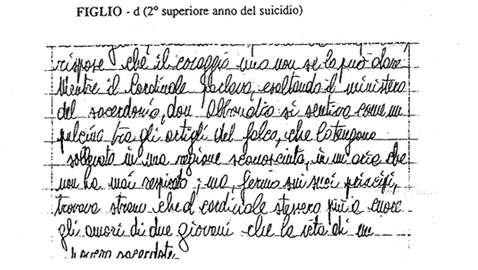 FIGLIO - d (2° superiore anno del suicidio)
rispose che il coraggio uno non se lo può dare
Mentre il Cardinale parlava, esaltando il ministero
del sacerdozio, don Abbondio si sentiva come un
pulcino tra gli artigli del falco, che lo tengono
sollevato in una regione sconosciuta, in un'aria che
non ha mai respirato; ma, fermo sui suoi principi,
trovava strano che al cardinale stessero più a cuore
gli amori di due giovani che la vita di un
povero sacerdote